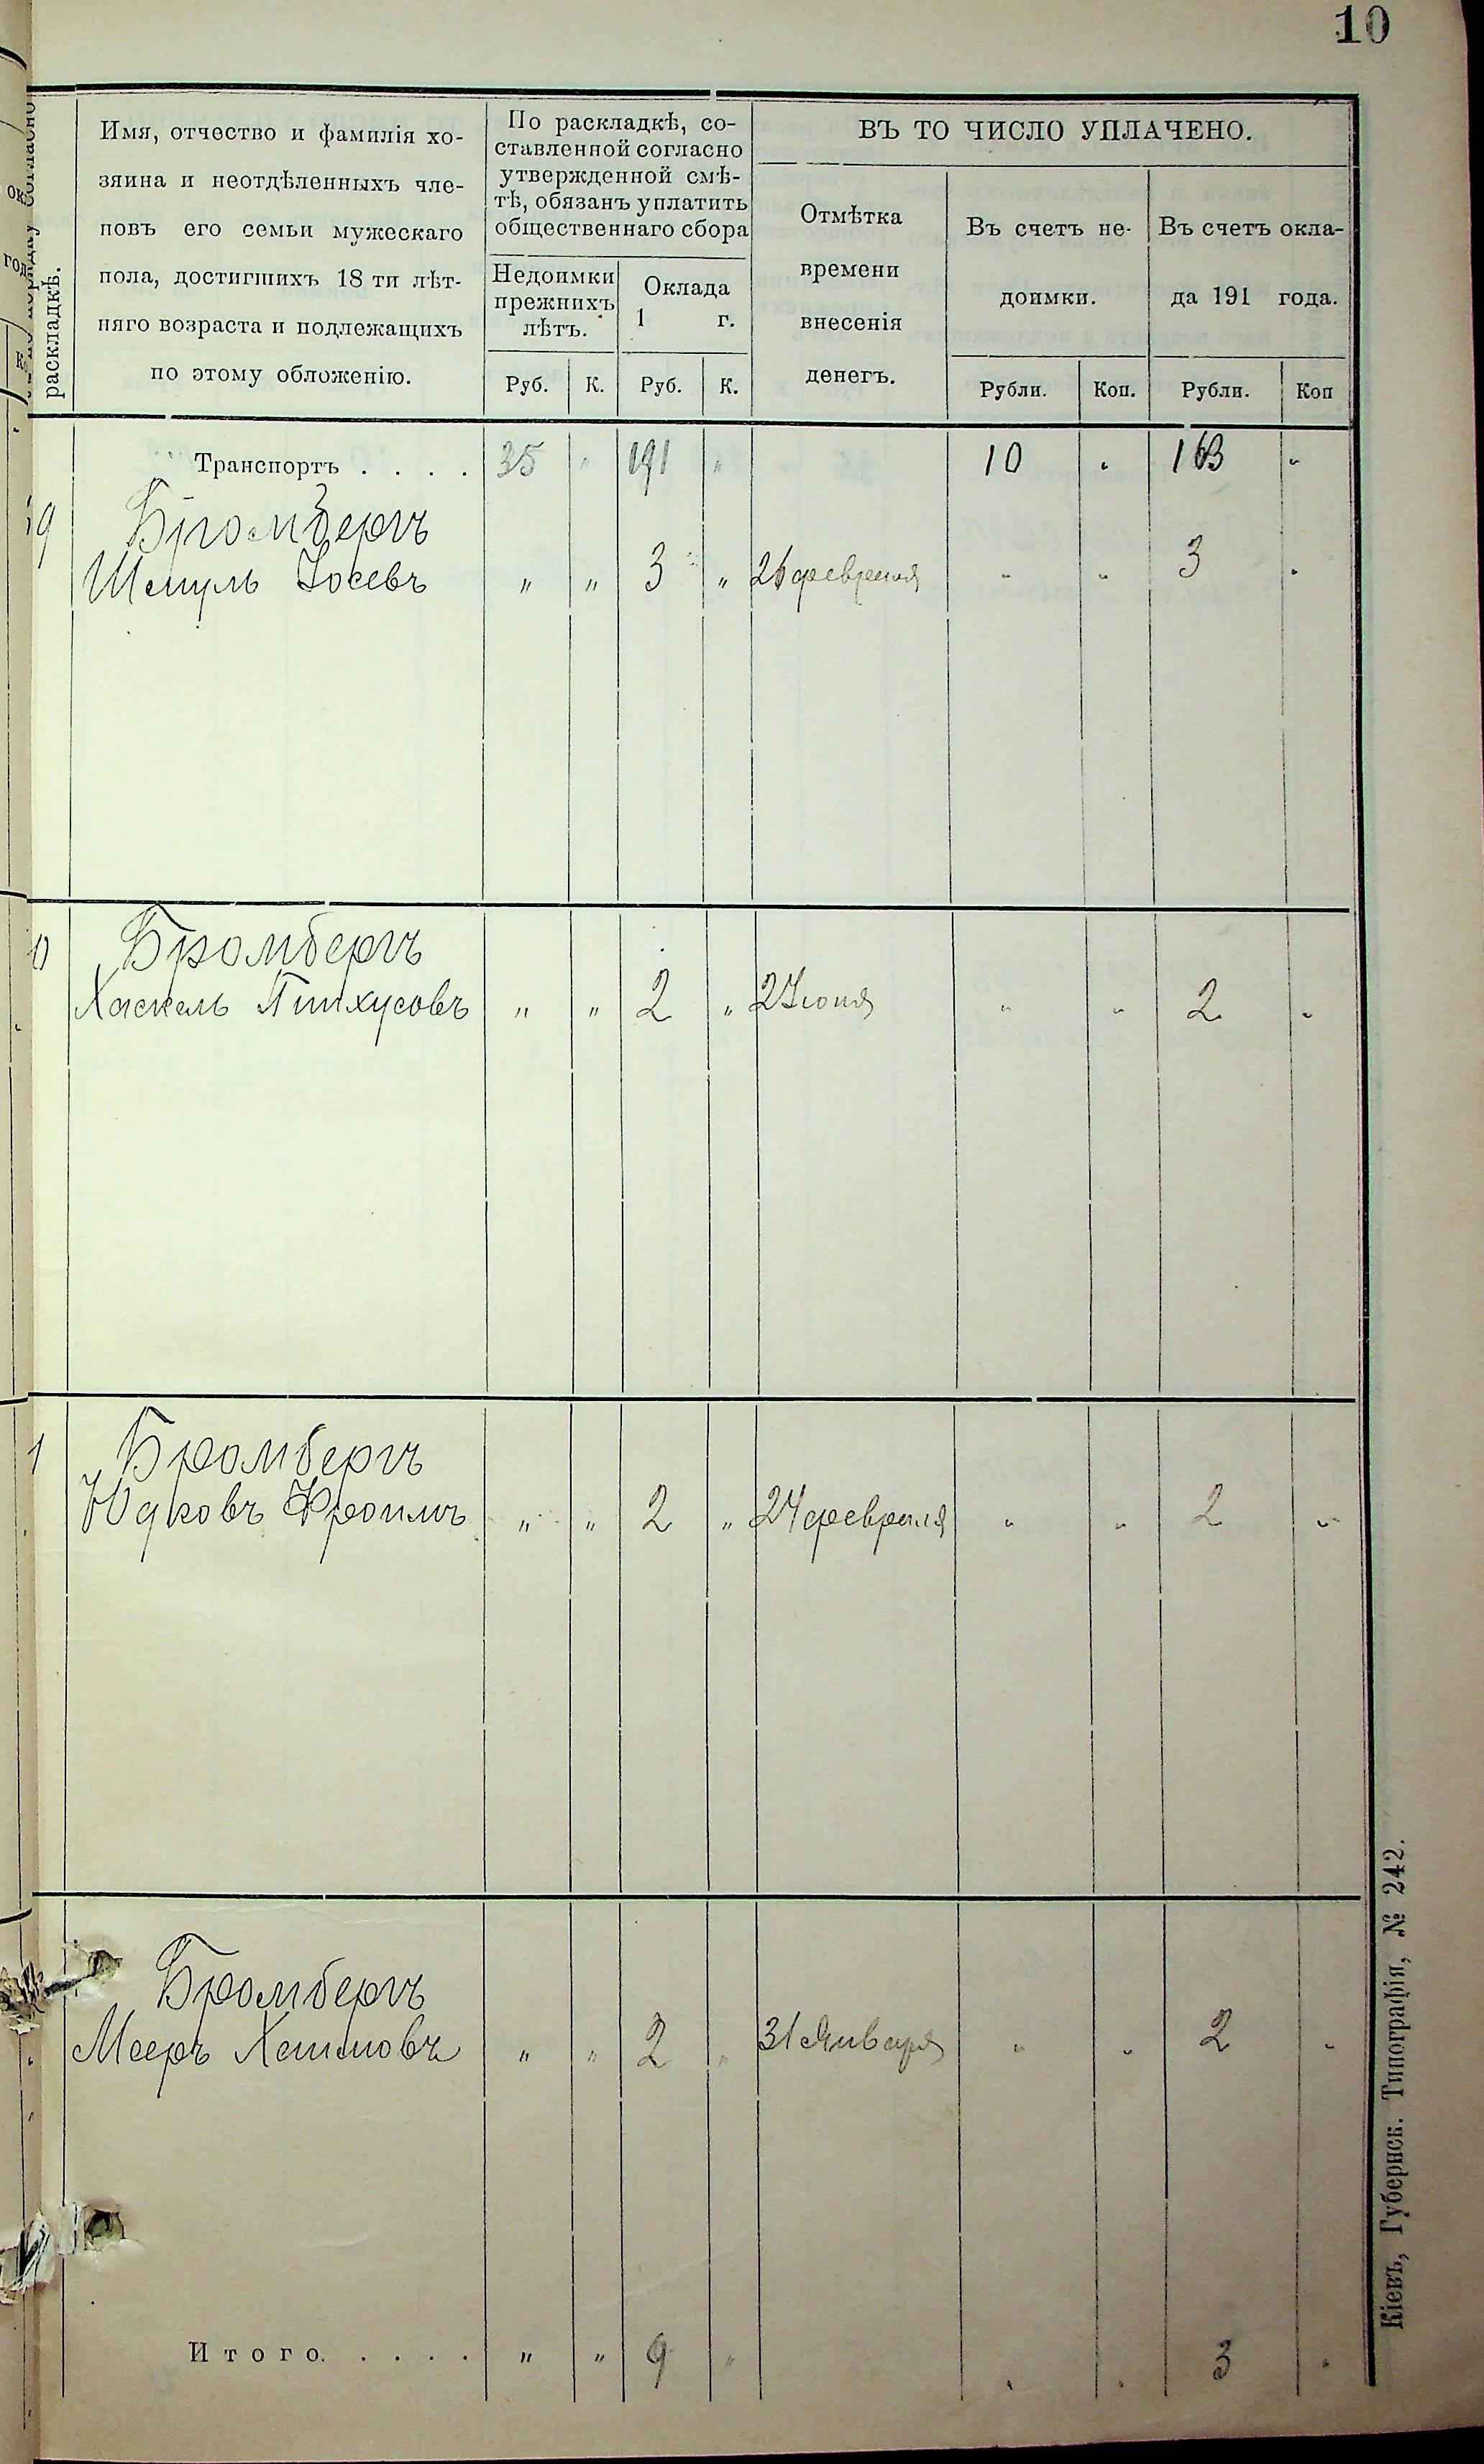 10
раскладкѣ.
Имя, отчество и фамилія хо-
зяина и неотдѣленныхъ чле-
новъ его семьи мужескаго
пола, достигшихъ 18 ти лѣт-
няго возраста и подлежащихъ
по этому обложенію.
По раскладкѣ, со-
ставленной согласно
утвержденной смѣ-
тѣ, обязанъ уплатить
общественнаго сбора
Недоимки
прежнихъ
лѣтъ.
Оклада
1 г.
ВЪ ТО ЧИСЛО УПЛАЧЕНО.
Отмѣтка
времени
внесенія
денегъ.
Въ счетъ не-
доимки.
Въ счетъ окла-
да 191 года.
Руб. К. Руб. К. Рубли. Коп. Рубли. Коп
Транспортъ . . . . 35 " 191 " 10 " 163 "
9 Бромбергъ
Шмуль Іосевъ " " 3 " 26 февраля " " 3 "
0 Бромбергъ
Хаскель Пинхусовъ " " 2 " 2 Іюня " " 2 "
1 Бромбергъ
Юдковъ Фроимъ " " 2 " 24 февраля " " 2 "
Бромбергъ
Мееръ Хаимовъ " " 2 " 31 Января " " 2 "
Итого. . . . . " " 9 " " " 3 "
Кіевъ, Губернск. Типографія, № 242.